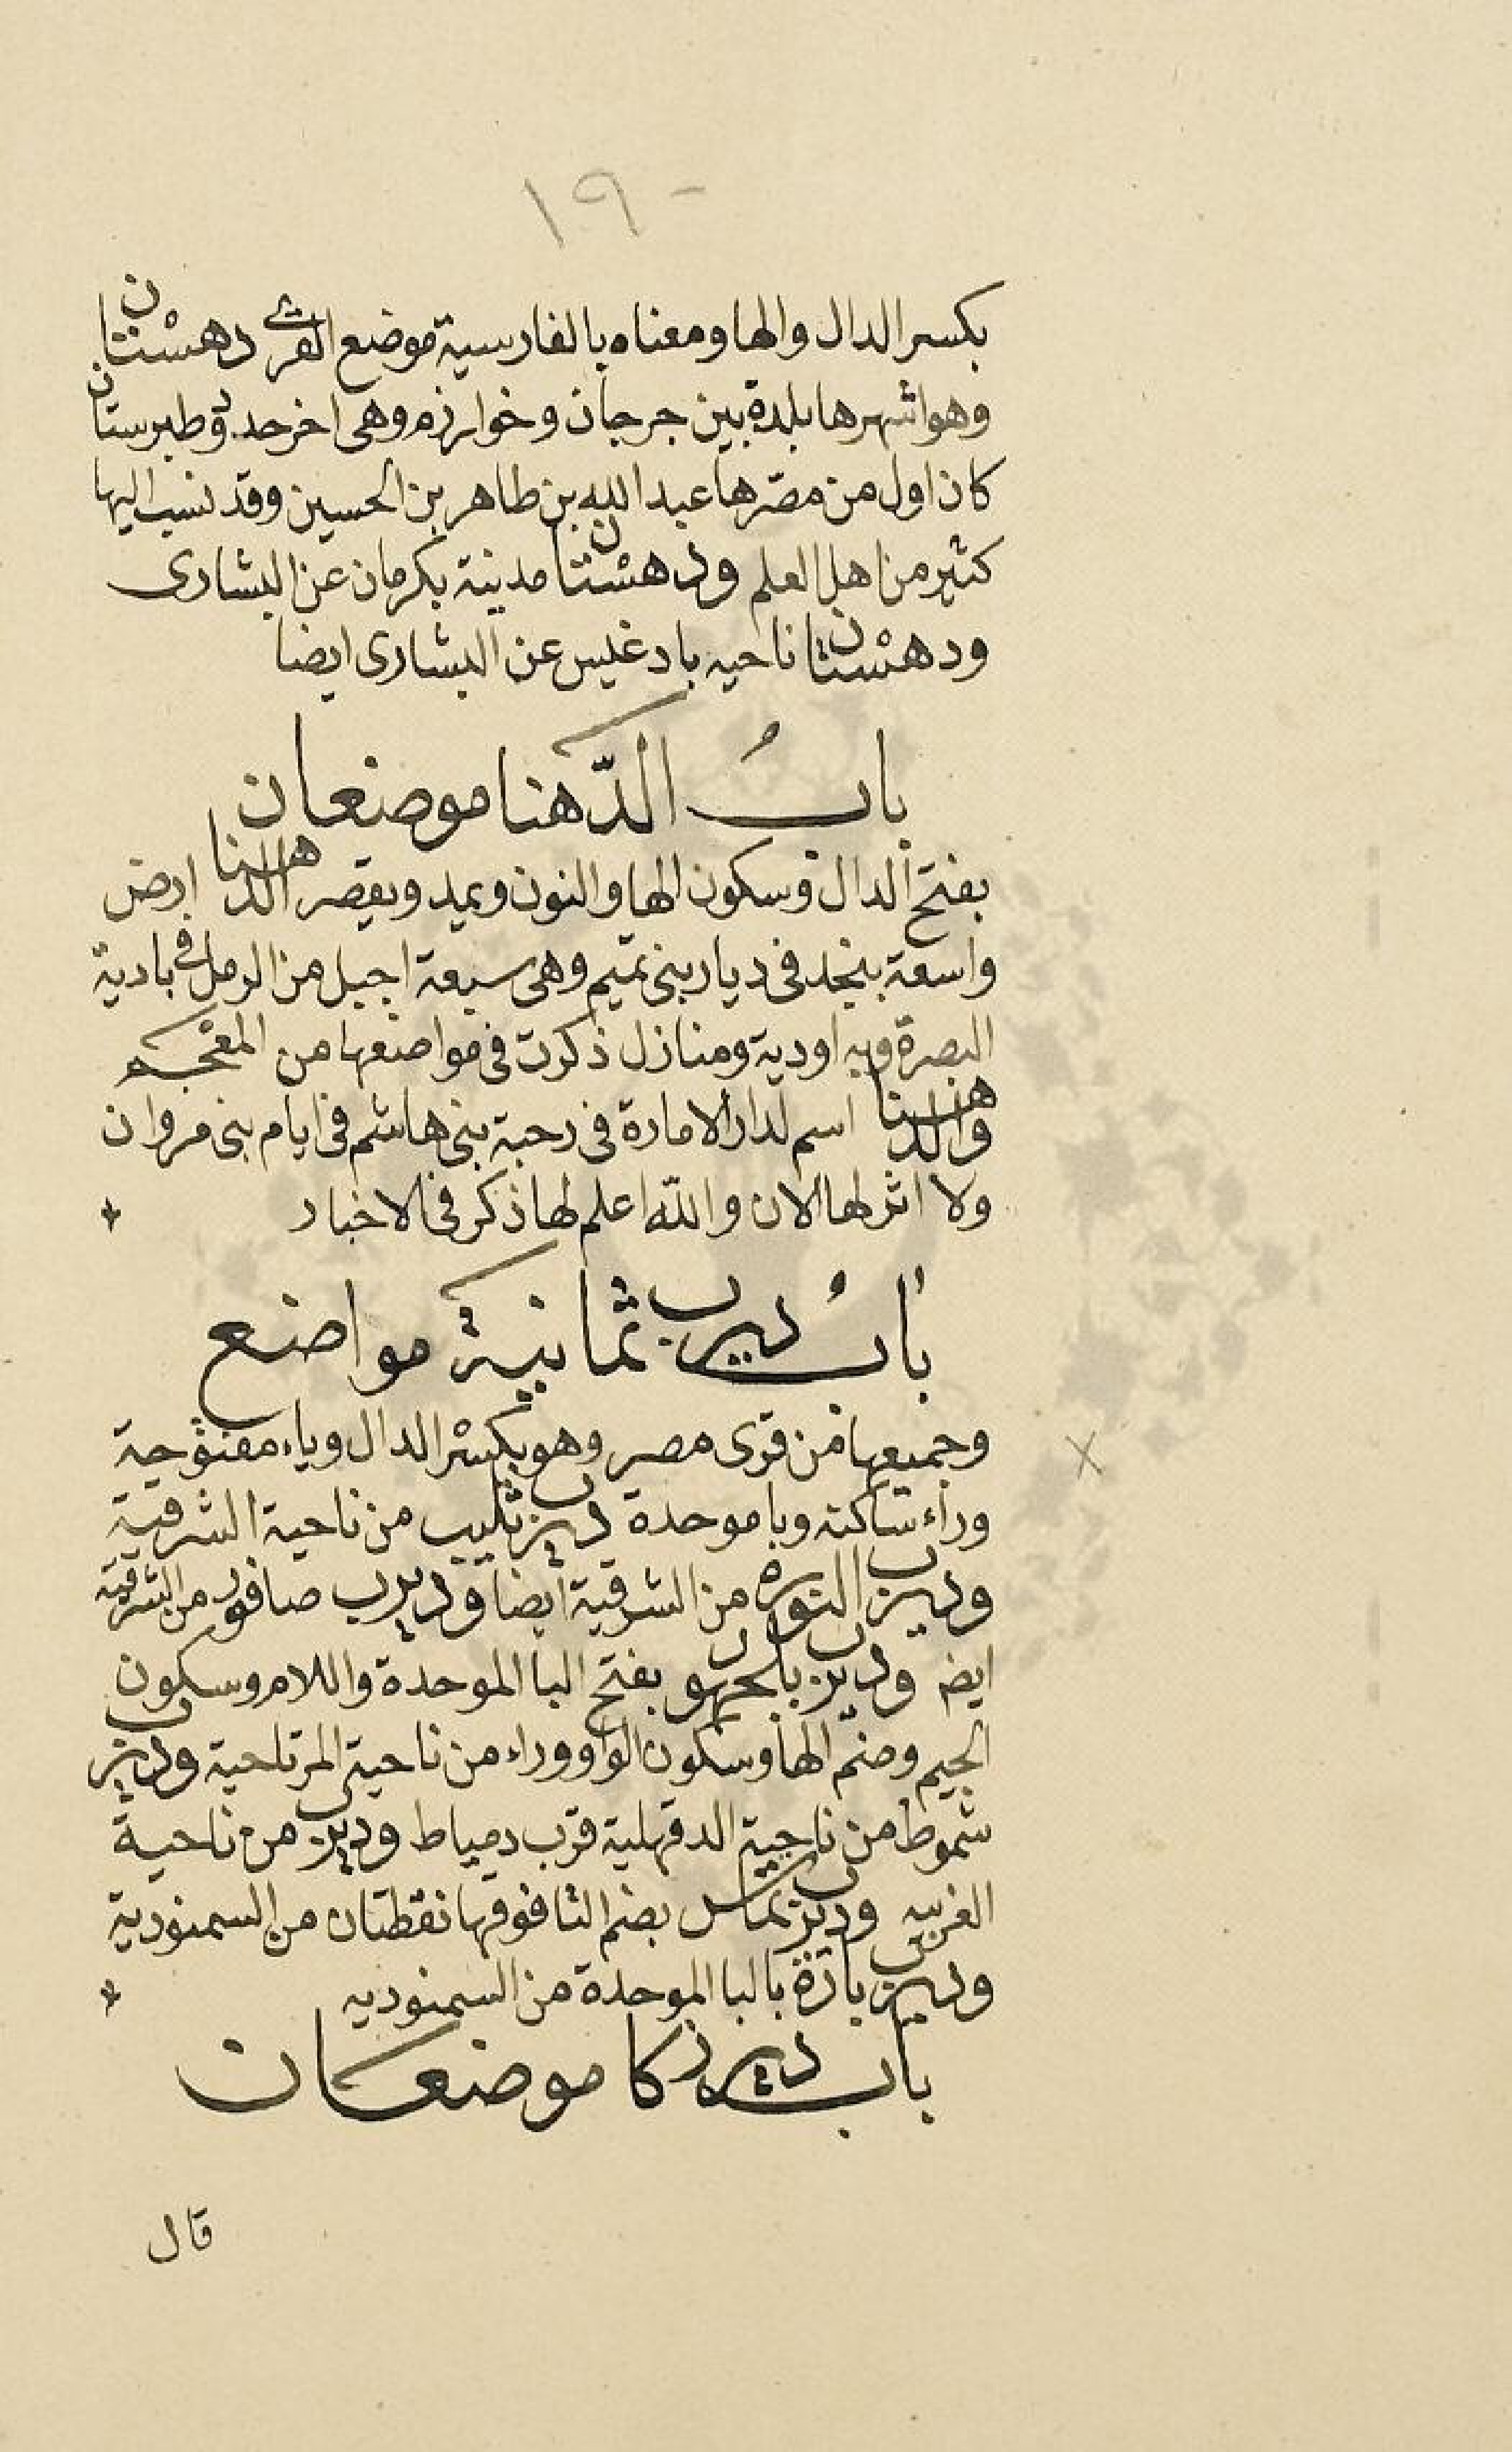 ١٩٠
بكسر الدال والها ومعناه بالفارسية موضع القرى دهستان
وهو اشهرها بلدة بين جرجان وخوارزم وهى اخر حدود طبرستان
كان اول من مصّرها عبد الله بن طاهر بن الحسين وقد نسب اليها
كثير من اهل العلم ودهستان مدينة بكرمان عن البشارى
ودهستان ناحيه باد غيس عن البشارى ايضا
بابُ الدّهنا موضعان
بفتح الدال وسكون الها والنون ويمد ويقصر الدهنا ارض
واسعة بنجد فى ديار بنى تميم وهى سبعة اجبل من الرمل فى بادية
البصرة وبه اودية ومنازل ذكرت فى مواضعها من المعجم
والدهنا اسم لدار الامارة فى رحبة بنى هاشم فى ايام بنى مروان
ولا اثر لها الان والله اعلم لها ذكر فى الاخبار
بابُ ديرب ثمانية مواضع
وجميعها من قرى مصر وهو بكسر الدال وياء مفتوحة
وراء ساكنه وبا موحدة ديرب ثليب من ناحية الشرقية
وديرب النوره من الشرقية ايضا وديرب صافور من الشرقيه
ايض وديرب بلجهور بفتح البا الموحدة واللام وسكون
الجيم وضم الها وسكون الواو وراء من ناحية المرتاحية وديرب
شموط من ناحية الدقهلية قرب دمياط وديرب من ناحية
الغربيه وديرب بضم التا فوقها نقطتان من السمنودية
وديرب بازة بالبا الموحدة من السمنوديه
باب ديركا موضعان
قال